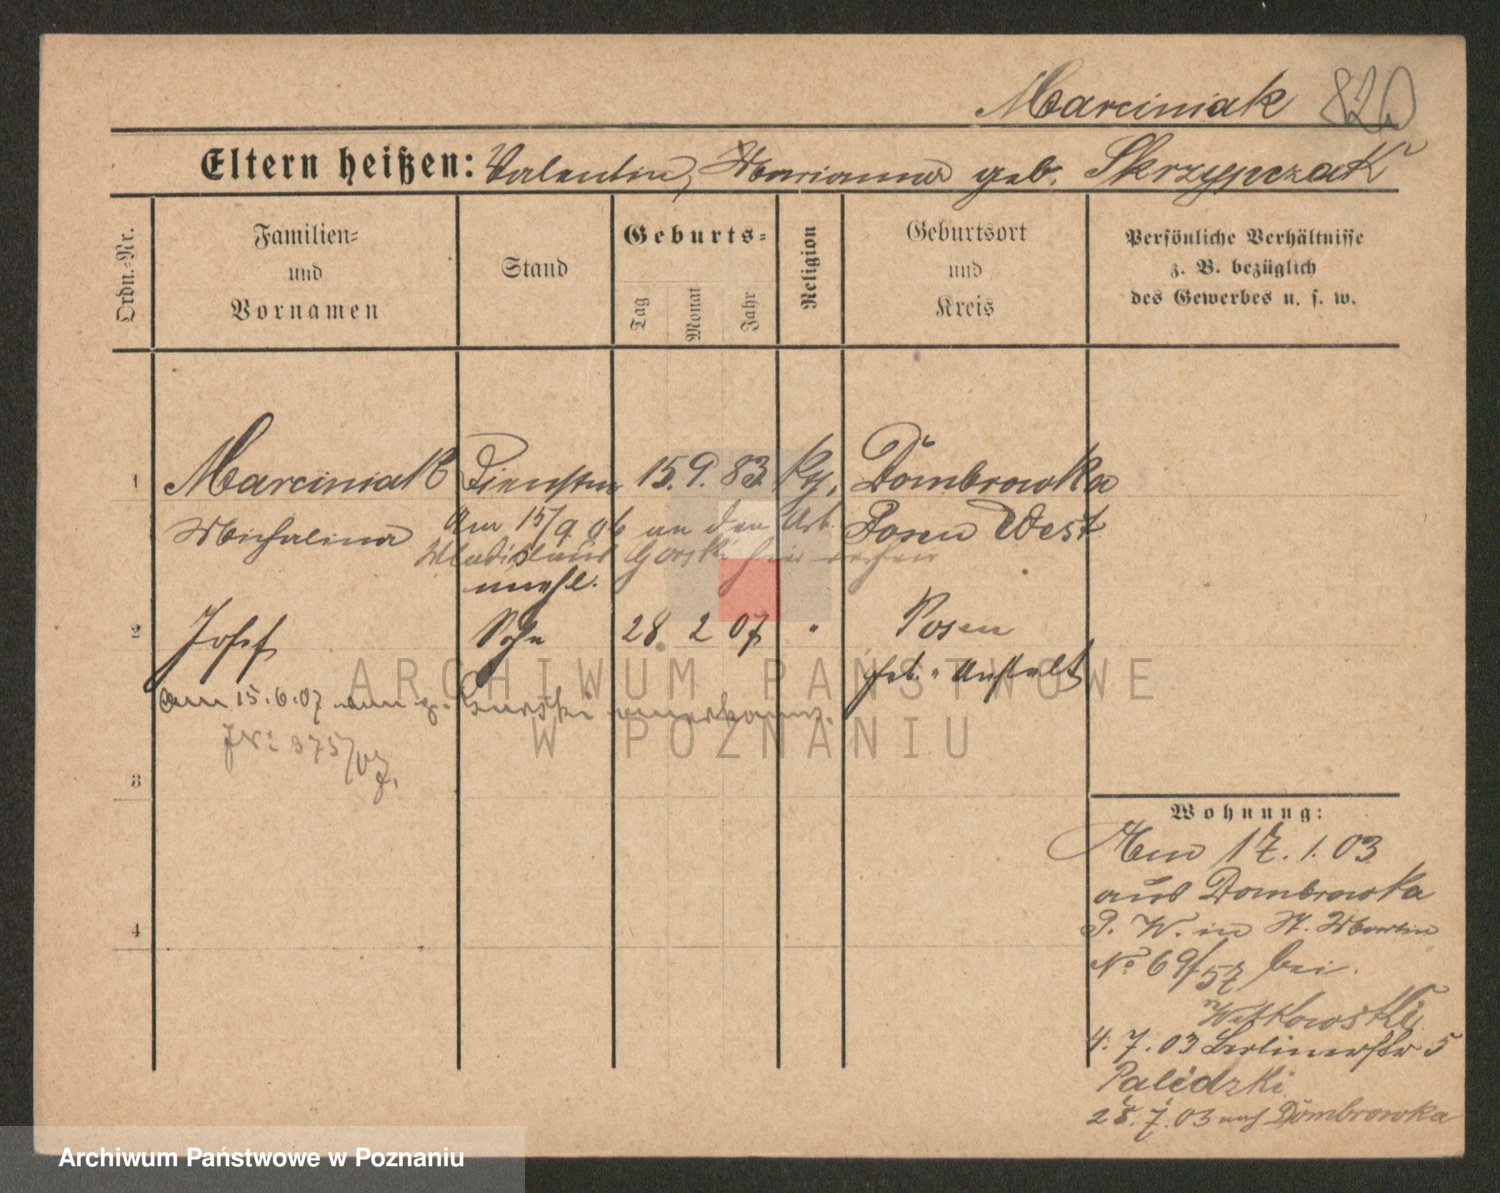 Marciniak 820
Eltern heißen: Valentin, Marianna geb. Skrzypczak
Ordn.-Nr.
Familien-
und
Vornamen
Stand
Geburts-
Tag
Monat
Jahr
Religion
Geburtsort
und
Kreis
Persönliche Verhältnisse
z. B. bezüglich
des Gewerbes u. s. w.
1 Marciniak 15. 9. 83. Dombrowka
Michalina Posen West
Am 15/9 06 an den Arb.
Wladislaus Gorski hier
2 Josef Sohn 28 2 07 " Posen
geb. Anstalt
am 15.6.07
JNr 375/07.
3
4
Wohnung:
Am 17. 1. 03
aus Dombrowka
P. W. in St. Martin
No 69/57 bei
Witkowski
4. 7. 03 Berlinerstr 5
Palidzki
28. 7. 03 nach Dombrowka
ARCHIWUM PAŃSTWOWE
W POZNANIU
Archiwum Państwowe w Poznaniu